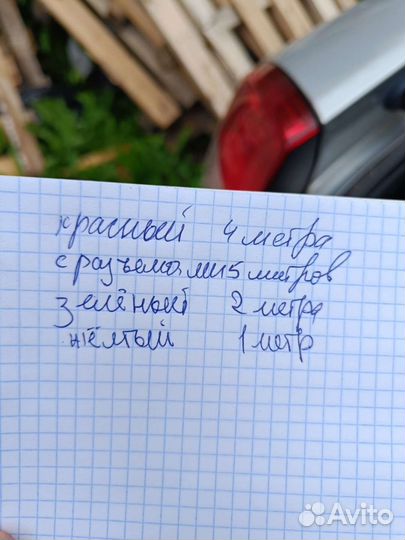 красный 4 метра
с разъемами 5 метров
зелёный 2 метра
жёлтый 1 метр
Avito